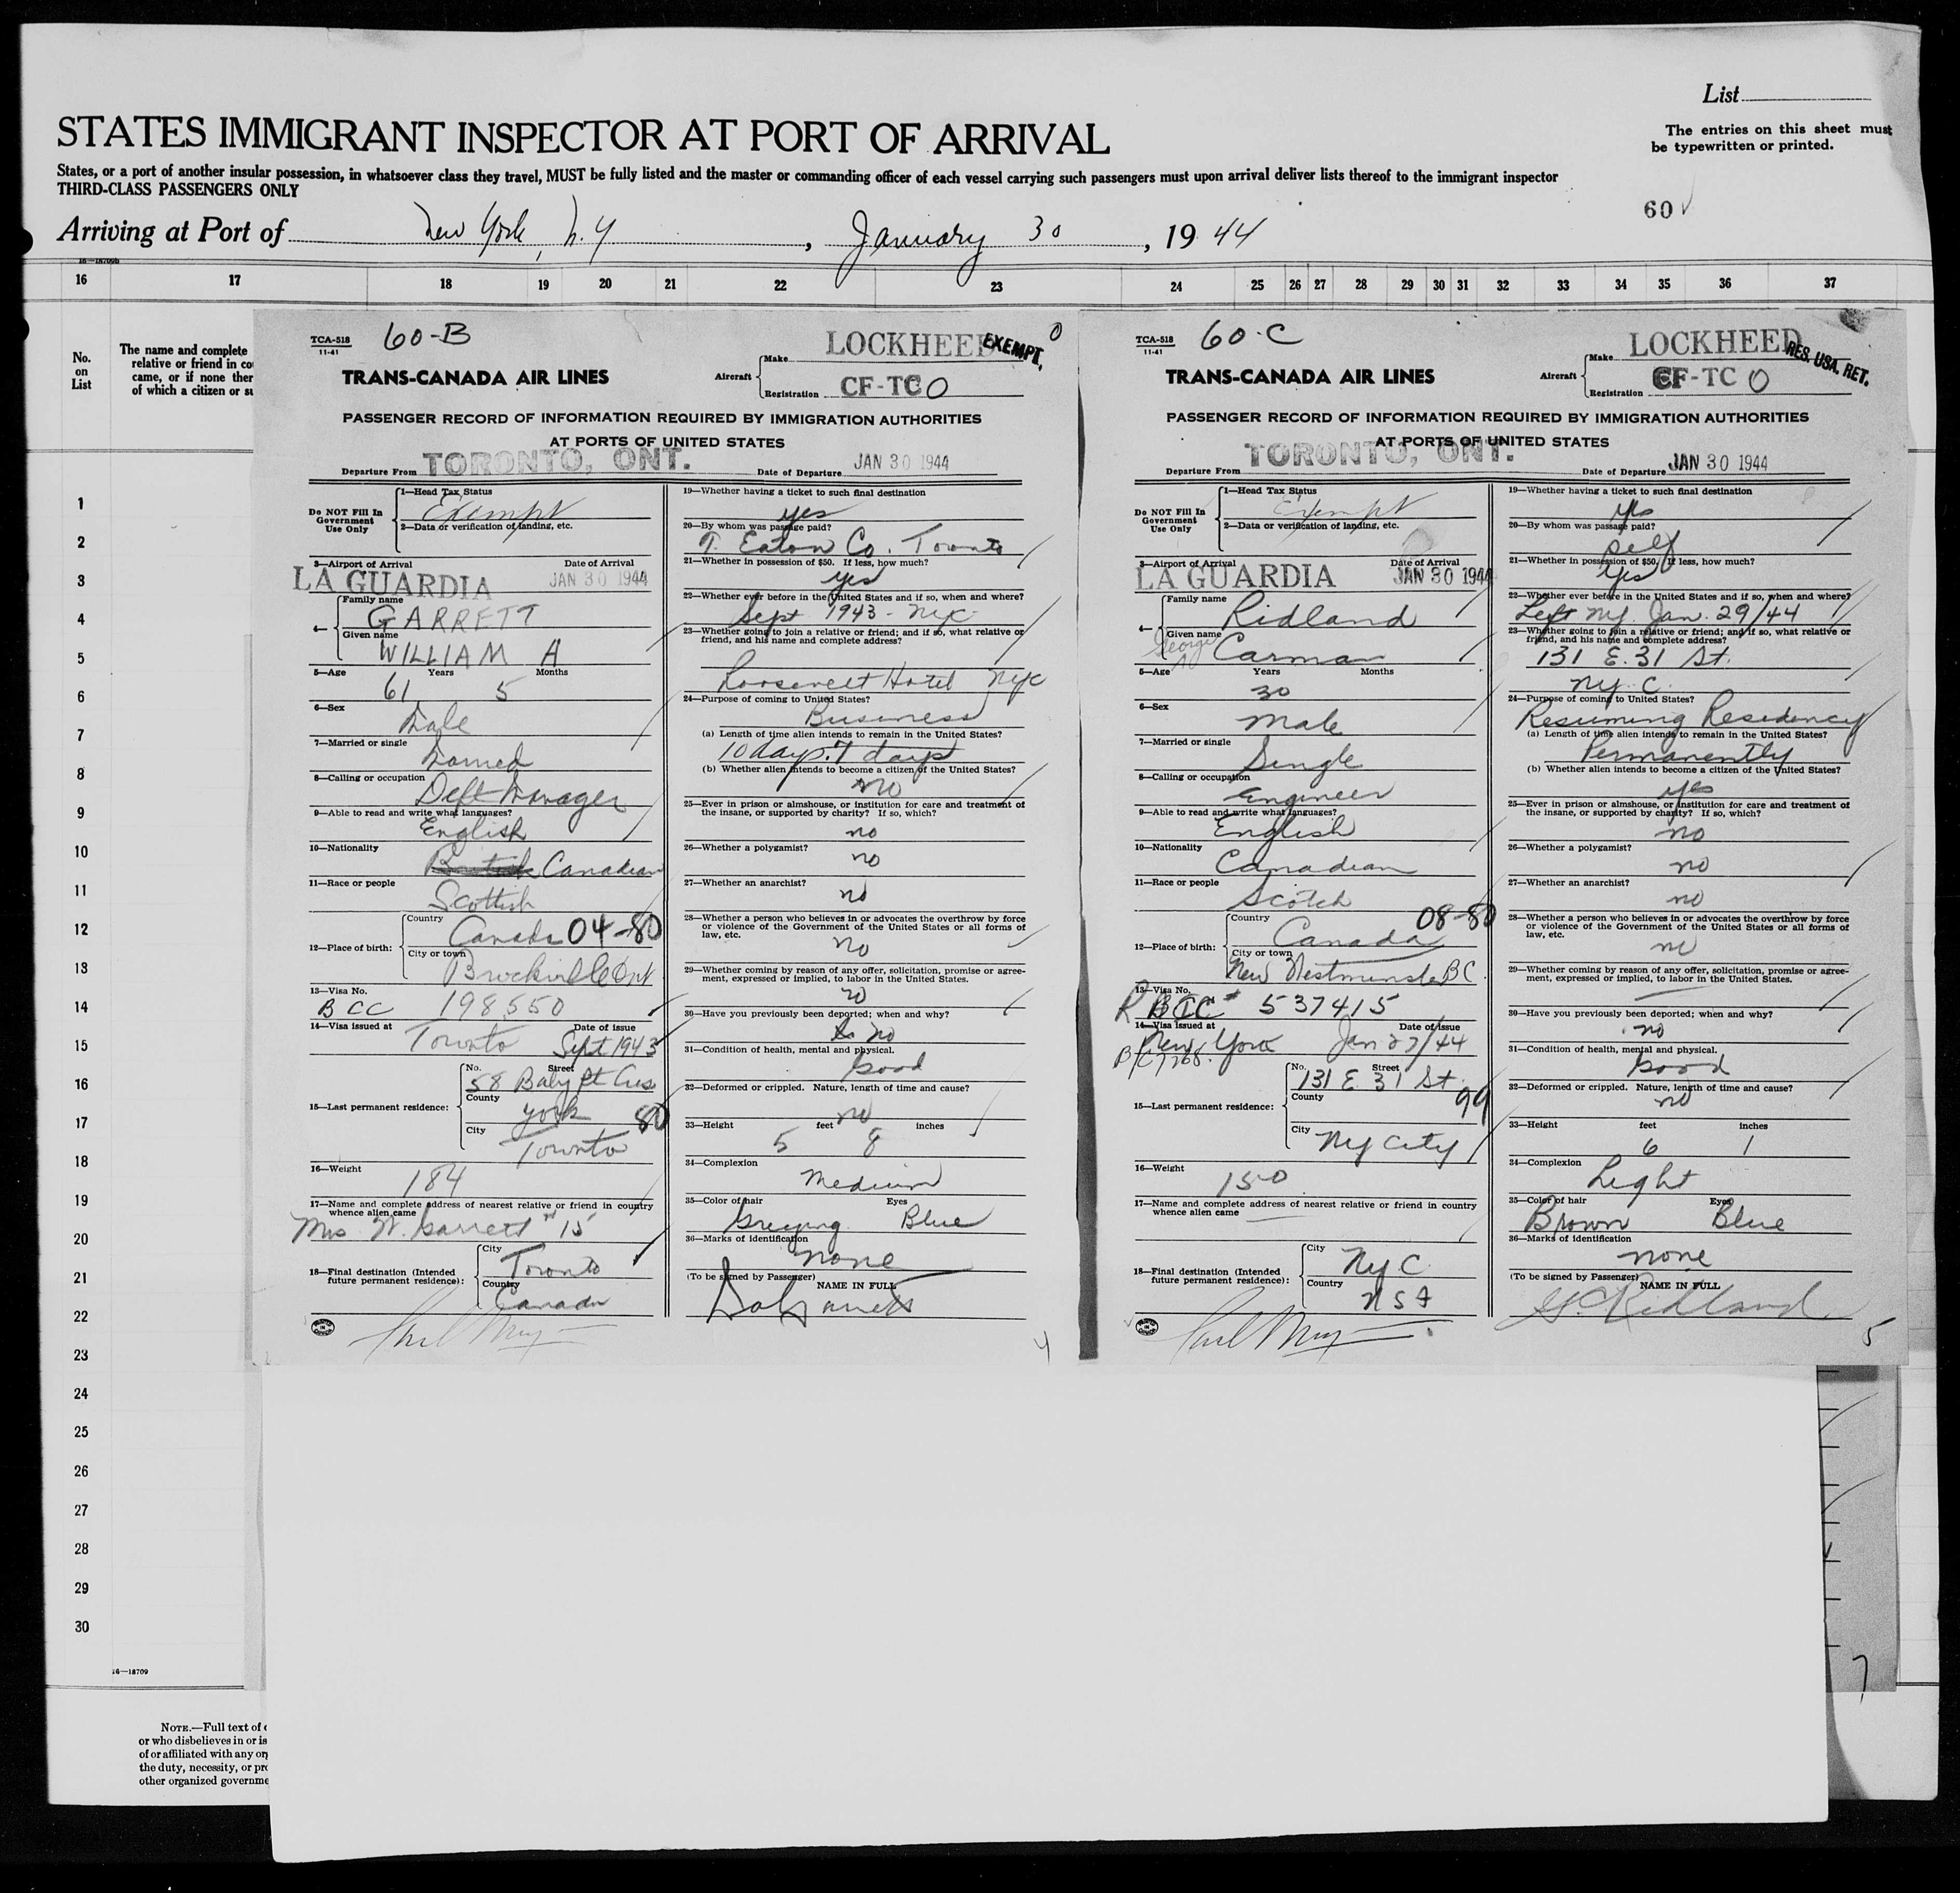 List
STATES IMMIGRANT INSPECTOR AT PORT OF ARRIVAL
The entries on this sheet must
be typewritten or printed.
States, or a port of another insular possession, in whatsoever class they travel, MUST be fully listed and the master or commanding officer of each vessel carrying such passengers must upon arrival deliver lists thereof to the immigrant inspector
THIRD-CLASS PASSENGERS ONLY
60
Arriving at Port of New York, N.Y, January 30, 1944
16 17 18 19 20 21 22 23 24 25 26 27 28 29 30 31 32 33 34 35 36 37
No.
on
List
The name and complete
relative or friend in co
came, or if none ther
of which a citizen or su
1
2
3
4
5
6
7
8
9
10
11
12
13
14
15
16
17
18
19
20
21
22
23
24
25
26
27
28
29
30
16—18709
NOTE.—Full text of
or who disbelieves in or is
of or affiliated with any org
the duty, necessity, or pro
other organized governme
TCA-518
11-41
60-B
Aircraft
Make LOCKHEED
EXEMPT.
0
TRANS-CANADA AIR LINES
Registration CF-TCO
PASSENGER RECORD OF INFORMATION REQUIRED BY IMMIGRATION AUTHORITIES
AT PORTS OF UNITED STATES
Departure From TORONTO, ONT. Date of Departure JAN 30 1944
Do NOT Fill In
Government
Use Only
1—Head Tax Status
Exempt
2—Data or verification of landing, etc.
3—Airport of Arrival Date of Arrival
LA GUARDIA JAN 30 1944
4—
Family name
GARRETT
Given name
WILLIAM A
5—Age Years Months
61 5
6—Sex
Male
7—Married or single
Married
8—Calling or occupation
Dept Manager
9—Able to read and write what languages?
English
10—Nationality
British Canadian
11—Race or people
Scottish
12—Place of birth:
Country
Canada 04-80
City or town
Brockville Ont
13—Visa No.
BCC 198550
14—Visa issued at Date of issue
Toronto Sept 1943
15—Last permanent residence:
No. Street
58 Baby Pt Cres
County
York 80
City
Toronto
16—Weight
184
17—Name and complete address of nearest relative or friend in country
whence alien came
Mrs W. Garrett # 15
18—Final destination (Intended
future permanent residence):
City
Toronto
Country
Canada
19—Whether having a ticket to such final destination
yes
20—By whom was passage paid?
T. Eaton Co. Toronto
21—Whether in possession of $50. If less, how much?
yes
22—Whether ever before in the United States and if so, when and where?
Sept 1943 - NYC
23—Whether going to join a relative or friend; and if so, what relative or
friend, and his name and complete address?
Roosevelt Hotel NYC
24—Purpose of coming to United States?
Business
(a) Length of time alien intends to remain in the United States?
10 days. 7 days
(b) Whether alien intends to become a citizen of the United States?
no
25—Ever in prison or almshouse, or institution for care and treatment of
the insane, or supported by charity? If so, which?
no
26—Whether a polygamist?
no
27—Whether an anarchist?
no
28—Whether a person who believes in or advocates the overthrow by force
or violence of the Government of the United States or all forms of
law, etc.
no
29—Whether coming by reason of any offer, solicitation, promise or agree-
ment, expressed or implied, to labor in the United States.
no
30—Have you previously been deported; when and why?
no
31—Condition of health, mental and physical.
Good
32—Deformed or crippled. Nature, length of time and cause?
no
33—Height feet inches
5 8
34—Complexion
Medium
35—Color of hair Eyes
Greying Blue
36—Marks of identification
none
(To be signed by Passenger) NAME IN FULL
4
TCA-518
11-41
60-C
Aircraft
Make LOCKHEED
RES. USA. RET.
TRANS-CANADA AIR LINES
Registration CF-TC O
PASSENGER RECORD OF INFORMATION REQUIRED BY IMMIGRATION AUTHORITIES
AT PORTS OF UNITED STATES
Departure From TORONTO, ONT. Date of Departure JAN 30 1944
Do NOT Fill In
Government
Use Only
1—Head Tax Status
Exempt
2—Data or verification of landing, etc.
3—Airport of Arrival Date of Arrival
LA GUARDIA JAN 30 1944
4—
Family name
Ridland
Given name
George Carman
5—Age Years Months
30
6—Sex
Male
7—Married or single
Single
8—Calling or occupation
Engineer
9—Able to read and write what languages?
English
10—Nationality
Canadian
11—Race or people
Scotch
12—Place of birth:
Country
Canada 08-80
City or town
New Westminster BC.
13—Visa No.
# 537415
14—Visa issued at Date of issue
New York Jan 27/44
15—Last permanent residence:
No. Street
131 E 31 St.
County
99
City
NY City
16—Weight
150
17—Name and complete address of nearest relative or friend in country
whence alien came
18—Final destination (Intended
future permanent residence):
City
NYC
Country
19—Whether having a ticket to such final destination
Yes
20—By whom was passage paid?
Self
21—Whether in possession of $50. If less, how much?
Yes
22—Whether ever before in the United States and if so, when and where?
Left NY. Jan. 29/44
23—Whether going to join a relative or friend; and if so, what relative or
friend, and his name and complete address?
131 E. 31 St.
NY.C.
24—Purpose of coming to United States?
Resuming Residency
(a) Length of time alien intends to remain in the United States?
Permanently
(b) Whether alien intends to become a citizen of the United States?
yes
25—Ever in prison or almshouse, or institution for care and treatment of
the insane, or supported by charity? If so, which?
no
26—Whether a polygamist?
no
27—Whether an anarchist?
no
28—Whether a person who believes in or advocates the overthrow by force
or violence of the Government of the United States or all forms of
law, etc.
no
29—Whether coming by reason of any offer, solicitation, promise or agree-
ment, expressed or implied, to labor in the United States.
30—Have you previously been deported; when and why?
no
31—Condition of health, mental and physical.
Good
32—Deformed or crippled. Nature, length of time and cause?
no
33—Height feet inches
6 1
34—Complexion
Light
35—Color of hair Eyes
Brown Blue
36—Marks of identification
none
(To be signed by Passenger) NAME IN FULL
G. C. Ridland
5
7